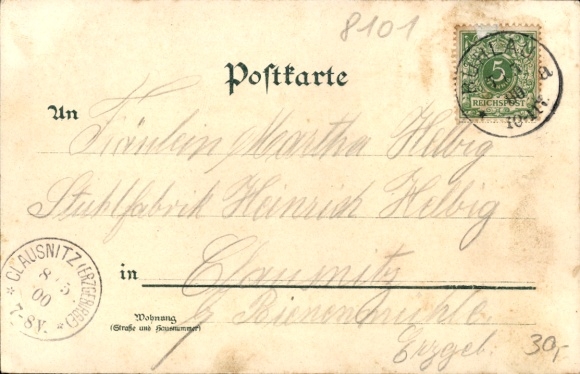 8101
Postkarte
MÜHLAU
a
10-11V.
5
REICHSPOST
An
Fräulein Martha Helbig
Stuhlfabrik Heinrich Helbig
in Clausnitz
b/ Bienenmühle
Erzgeb.
Wohnung
(Straße und Hausnummer)
CLAUSNITZ (ERZGEBIRGE)
8 5
00
7-8V.
30,-